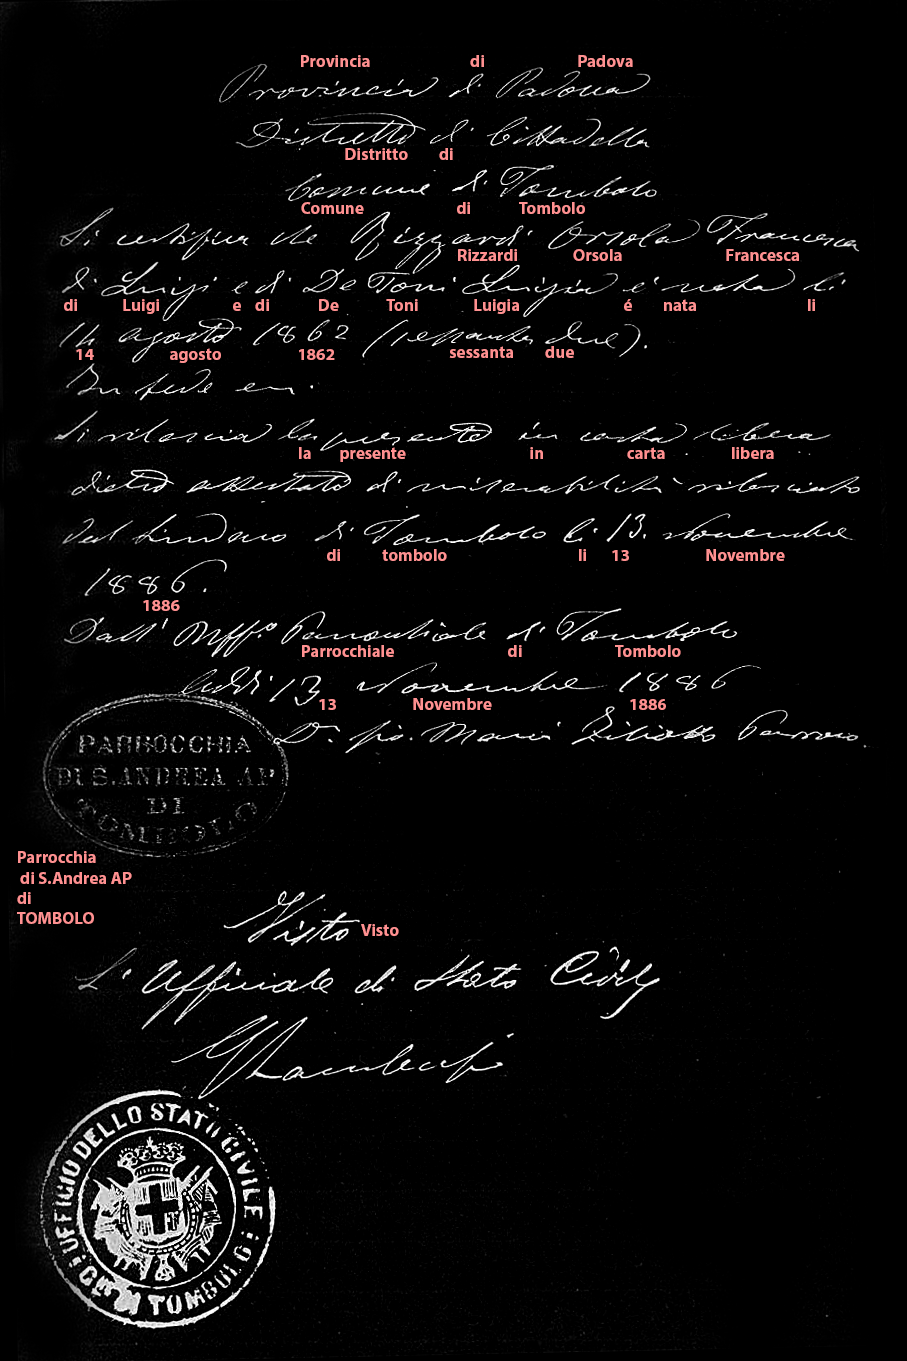 Provincia di Padova
Provincia di Padova
Distretto di Cittadella
Distritto di
Comune di Tombolo
Comune di Tombolo
Si certifica che Rizzardi Orsola Francesca
Rizzardi Orsola Francesca
di Luigi e di De Toni Luigia é nata li
di Luigi e di De Toni Luigia é nata li
14 agosto 1862 (sessanta due).
14 agosto 1862 sessanta due
In fede
Si rilascia la presente in carta libera
la presente in carta libera
dietro attestato di miserabilità rilasciato
dal Sindaco di Tombolo li 13. Novembre
di tombolo li 13 Novembre
1886.
1886
Dall' Uff.º Parrocchiale di Tombolo
Parrocchiale di Tombolo
addì 13 Novembre 1886
13 Novembre 1886
Maria Parroco
PARROCCHIA
DI S.ANDREA AP
DI
TOMBOLO
Parrocchia
di S.Andrea AP
di
TOMBOLO
Visto
Visto
L' Ufficiale di Stato Civile
UFFICIO DELLO STATO CIVILE
DI TOMBOLO